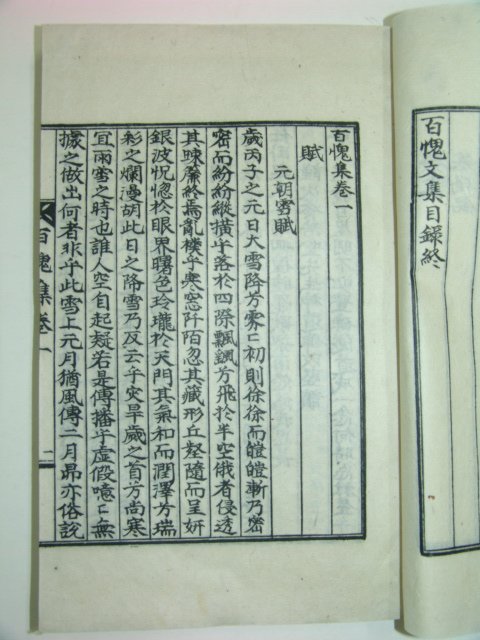 百愧文集目錄終
百愧集卷一
賦
元朝雪賦
歲丙子之元日大雪降方雰〻初則徐徐而皚皚漸乃密
密而紛紛縱橫乎落於四際飄飄方飛於半空俄者侵透
其疎簾終焉亂樸乎寒窓阡陌忽其藏形丘壑隨而呈姸
銀波怳惚於眼界曙色玲瓏於天門其氣和而潤澤方瑞
彩之爛漫胡此日之降雪乃反云乎灾旱歲之首方尚寒
宜雨雪之時也誰人空自起疑若是傳播乎虛假噫〻無
據之做出何者非乎此雪上元月猶風傳二月昴亦俗說
百愧集卷一